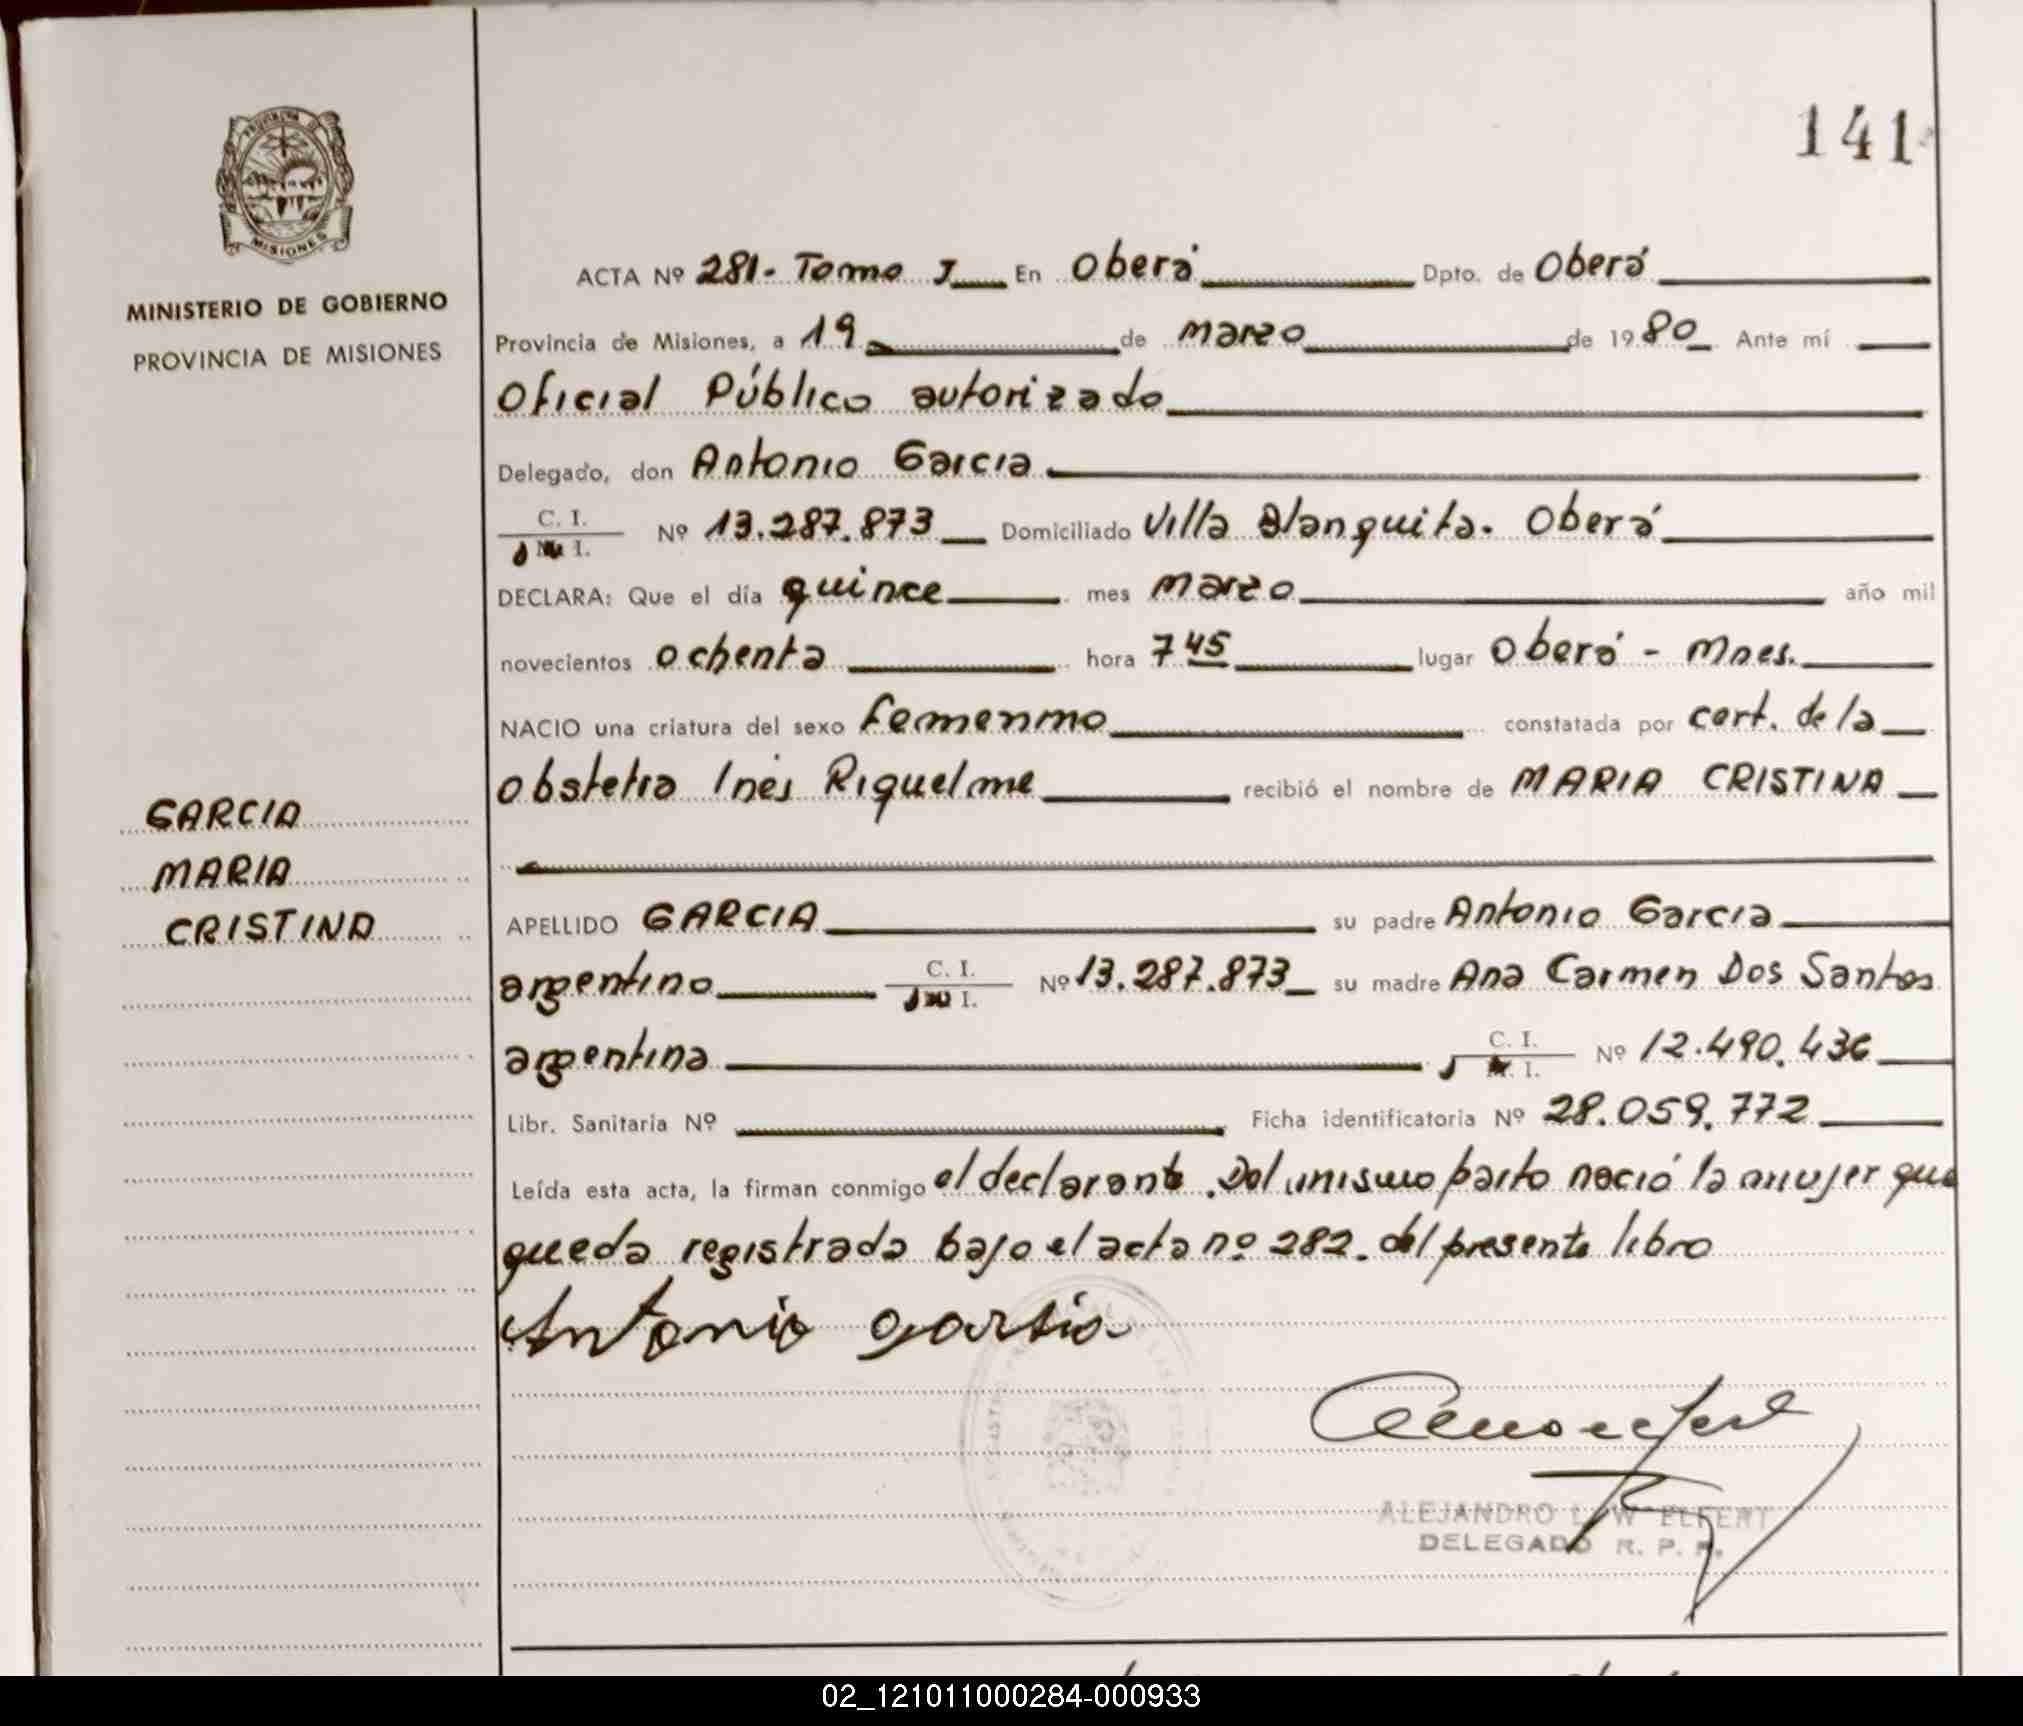 141
PROVINCIA DE
MISIONES
MINISTERIO DE GOBIERNO
PROVINCIA DE MISIONES
ACTA Nº 281- Tomo I En Oberá Dpto. de Oberá
Provincia de Misiones, a 19 de marzo de 1980 Ante mí
Oficial Público autorizado
Delegado, don Antonio Garcia
C. I. / I. Nº 13.287.873 Domiciliado Villa Blanquita. Oberá
DECLARA: Que el día quince mes Marzo año mil
novecientos ochenta hora 7 45 lugar Oberá - Mnes.
NACIO una criatura del sexo femenino constatada por cert. de la
obstetra Inés Riquelme recibió el nombre de MARIA CRISTINA
GARCIA
MARIA
CRISTINA
APELLIDO GARCIA su padre Antonio Garcia
argentino C. I. / I. Nº 13.287.873 su madre Ana Carmen Dos Santos
argentina C. I. / I. Nº 12.490.436
Libr. Sanitaria Nº Ficha identificatoria Nº 28.059.772
Leída esta acta, la firman conmigo el declarante. Del mismo parto nació la mujer que
queda registrada bajo el acta nº 282. del presente libro
Antonio garsia
ALEJANDRO L. W. ELFERT
DELEGADO R. P. P.
02_121011000284-000933